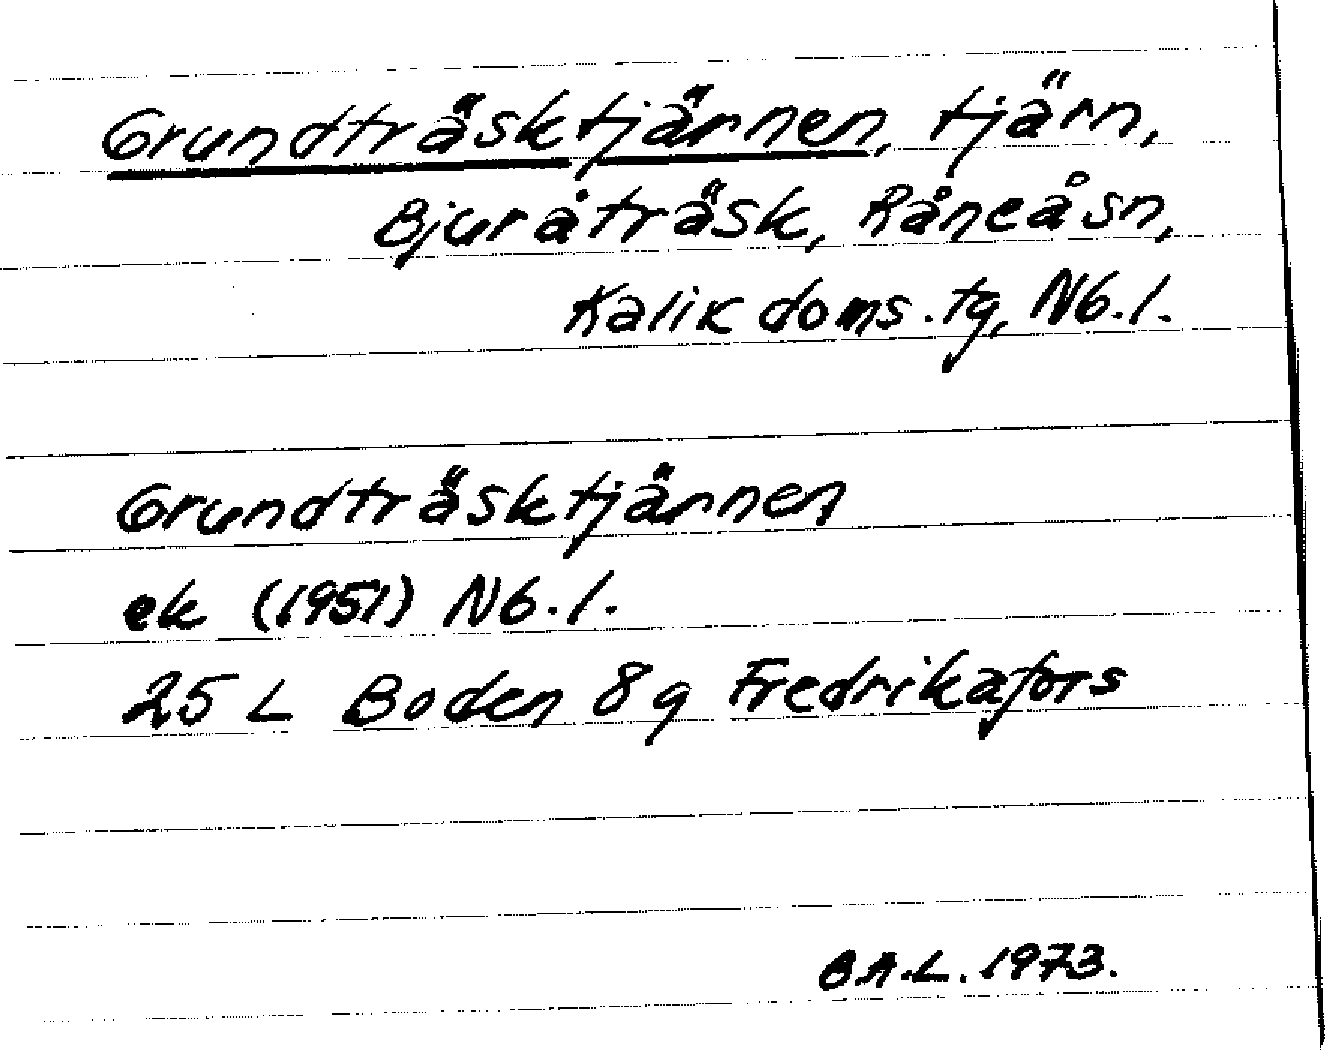 Grundträsktjärnen, tjärn,
Bjuråträsk, Råneå sn,
Kalix doms. tg, Nb. l.
Grundträsktjärnen
ek (1951) Nb. l.
25 L Boden 8 g Fredrikafors
B.A.L. 1973.